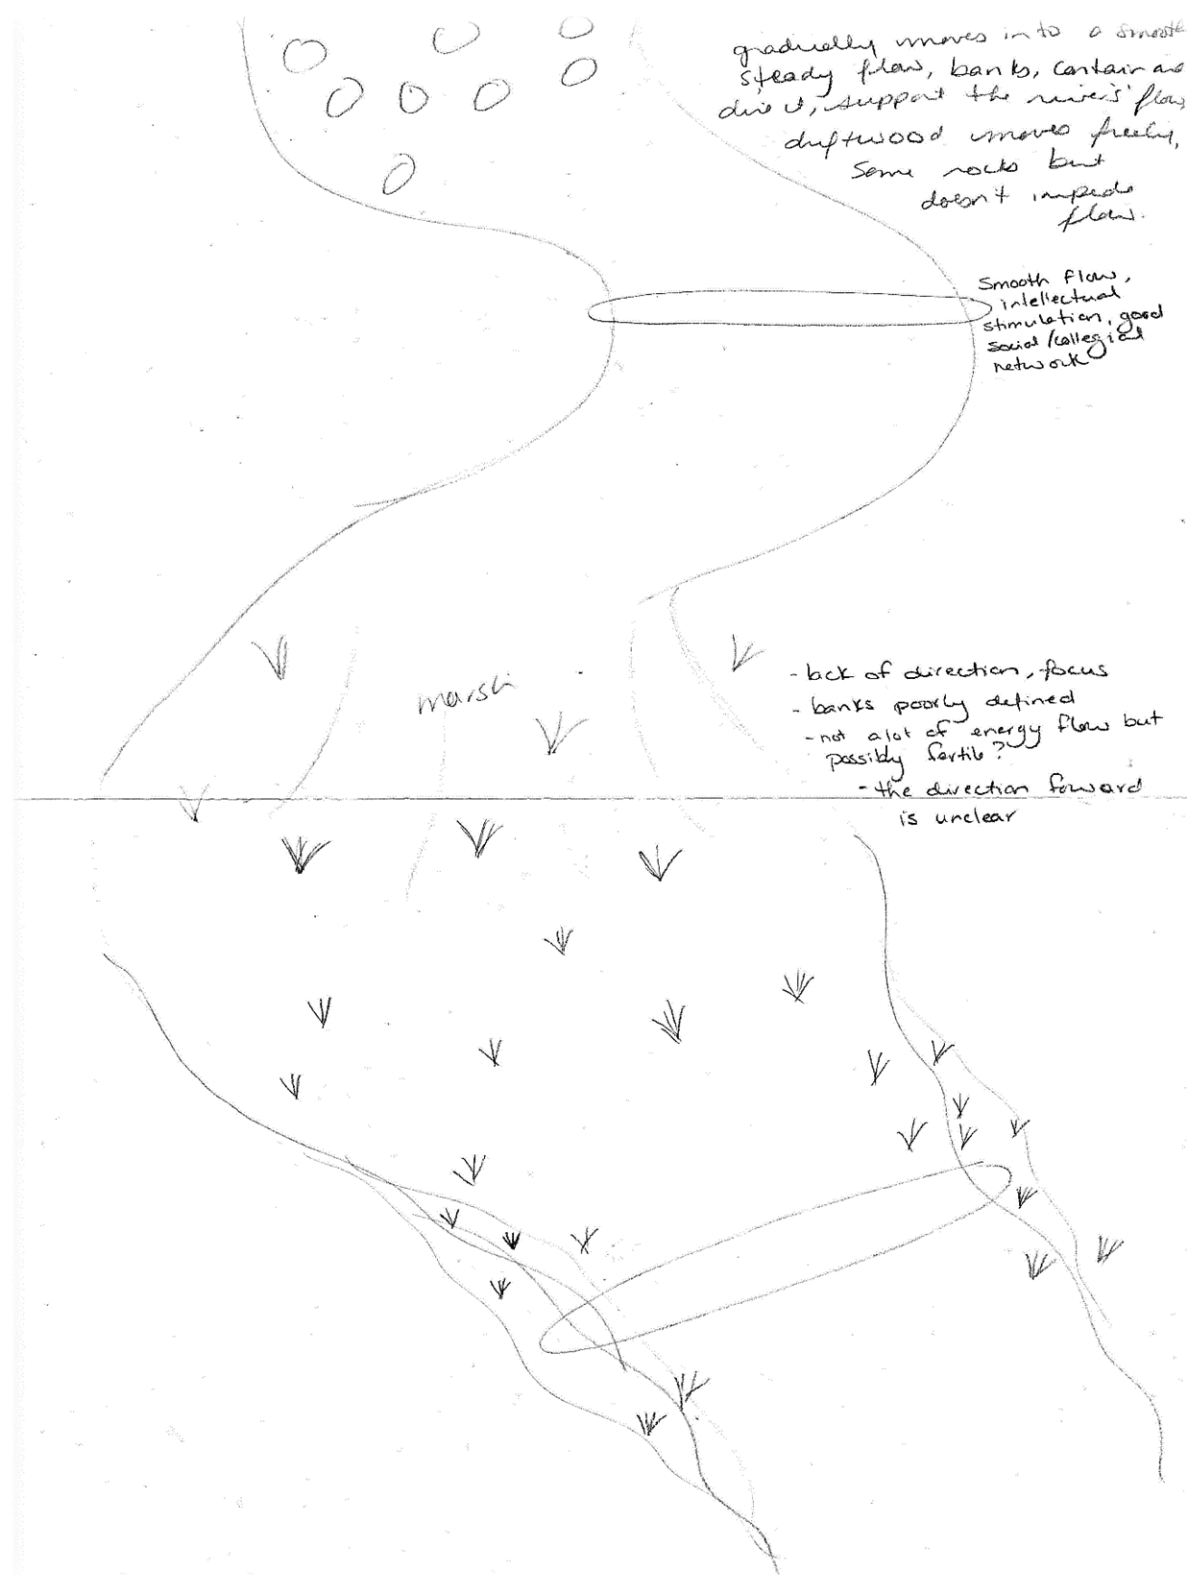 gradually moves into a smooth
steady flow, banks, contain and
direct, support the river's flow,
driftwood moves freely,
some rocks but
doesn't impede
flow.
Smooth flow,
intellectual
stimulation, good
social/collegial
network
marsh
- lack of direction, focus
- banks poorly defined
- not a lot of energy flow but
possibly fertile?
- the direction forward
is unclear